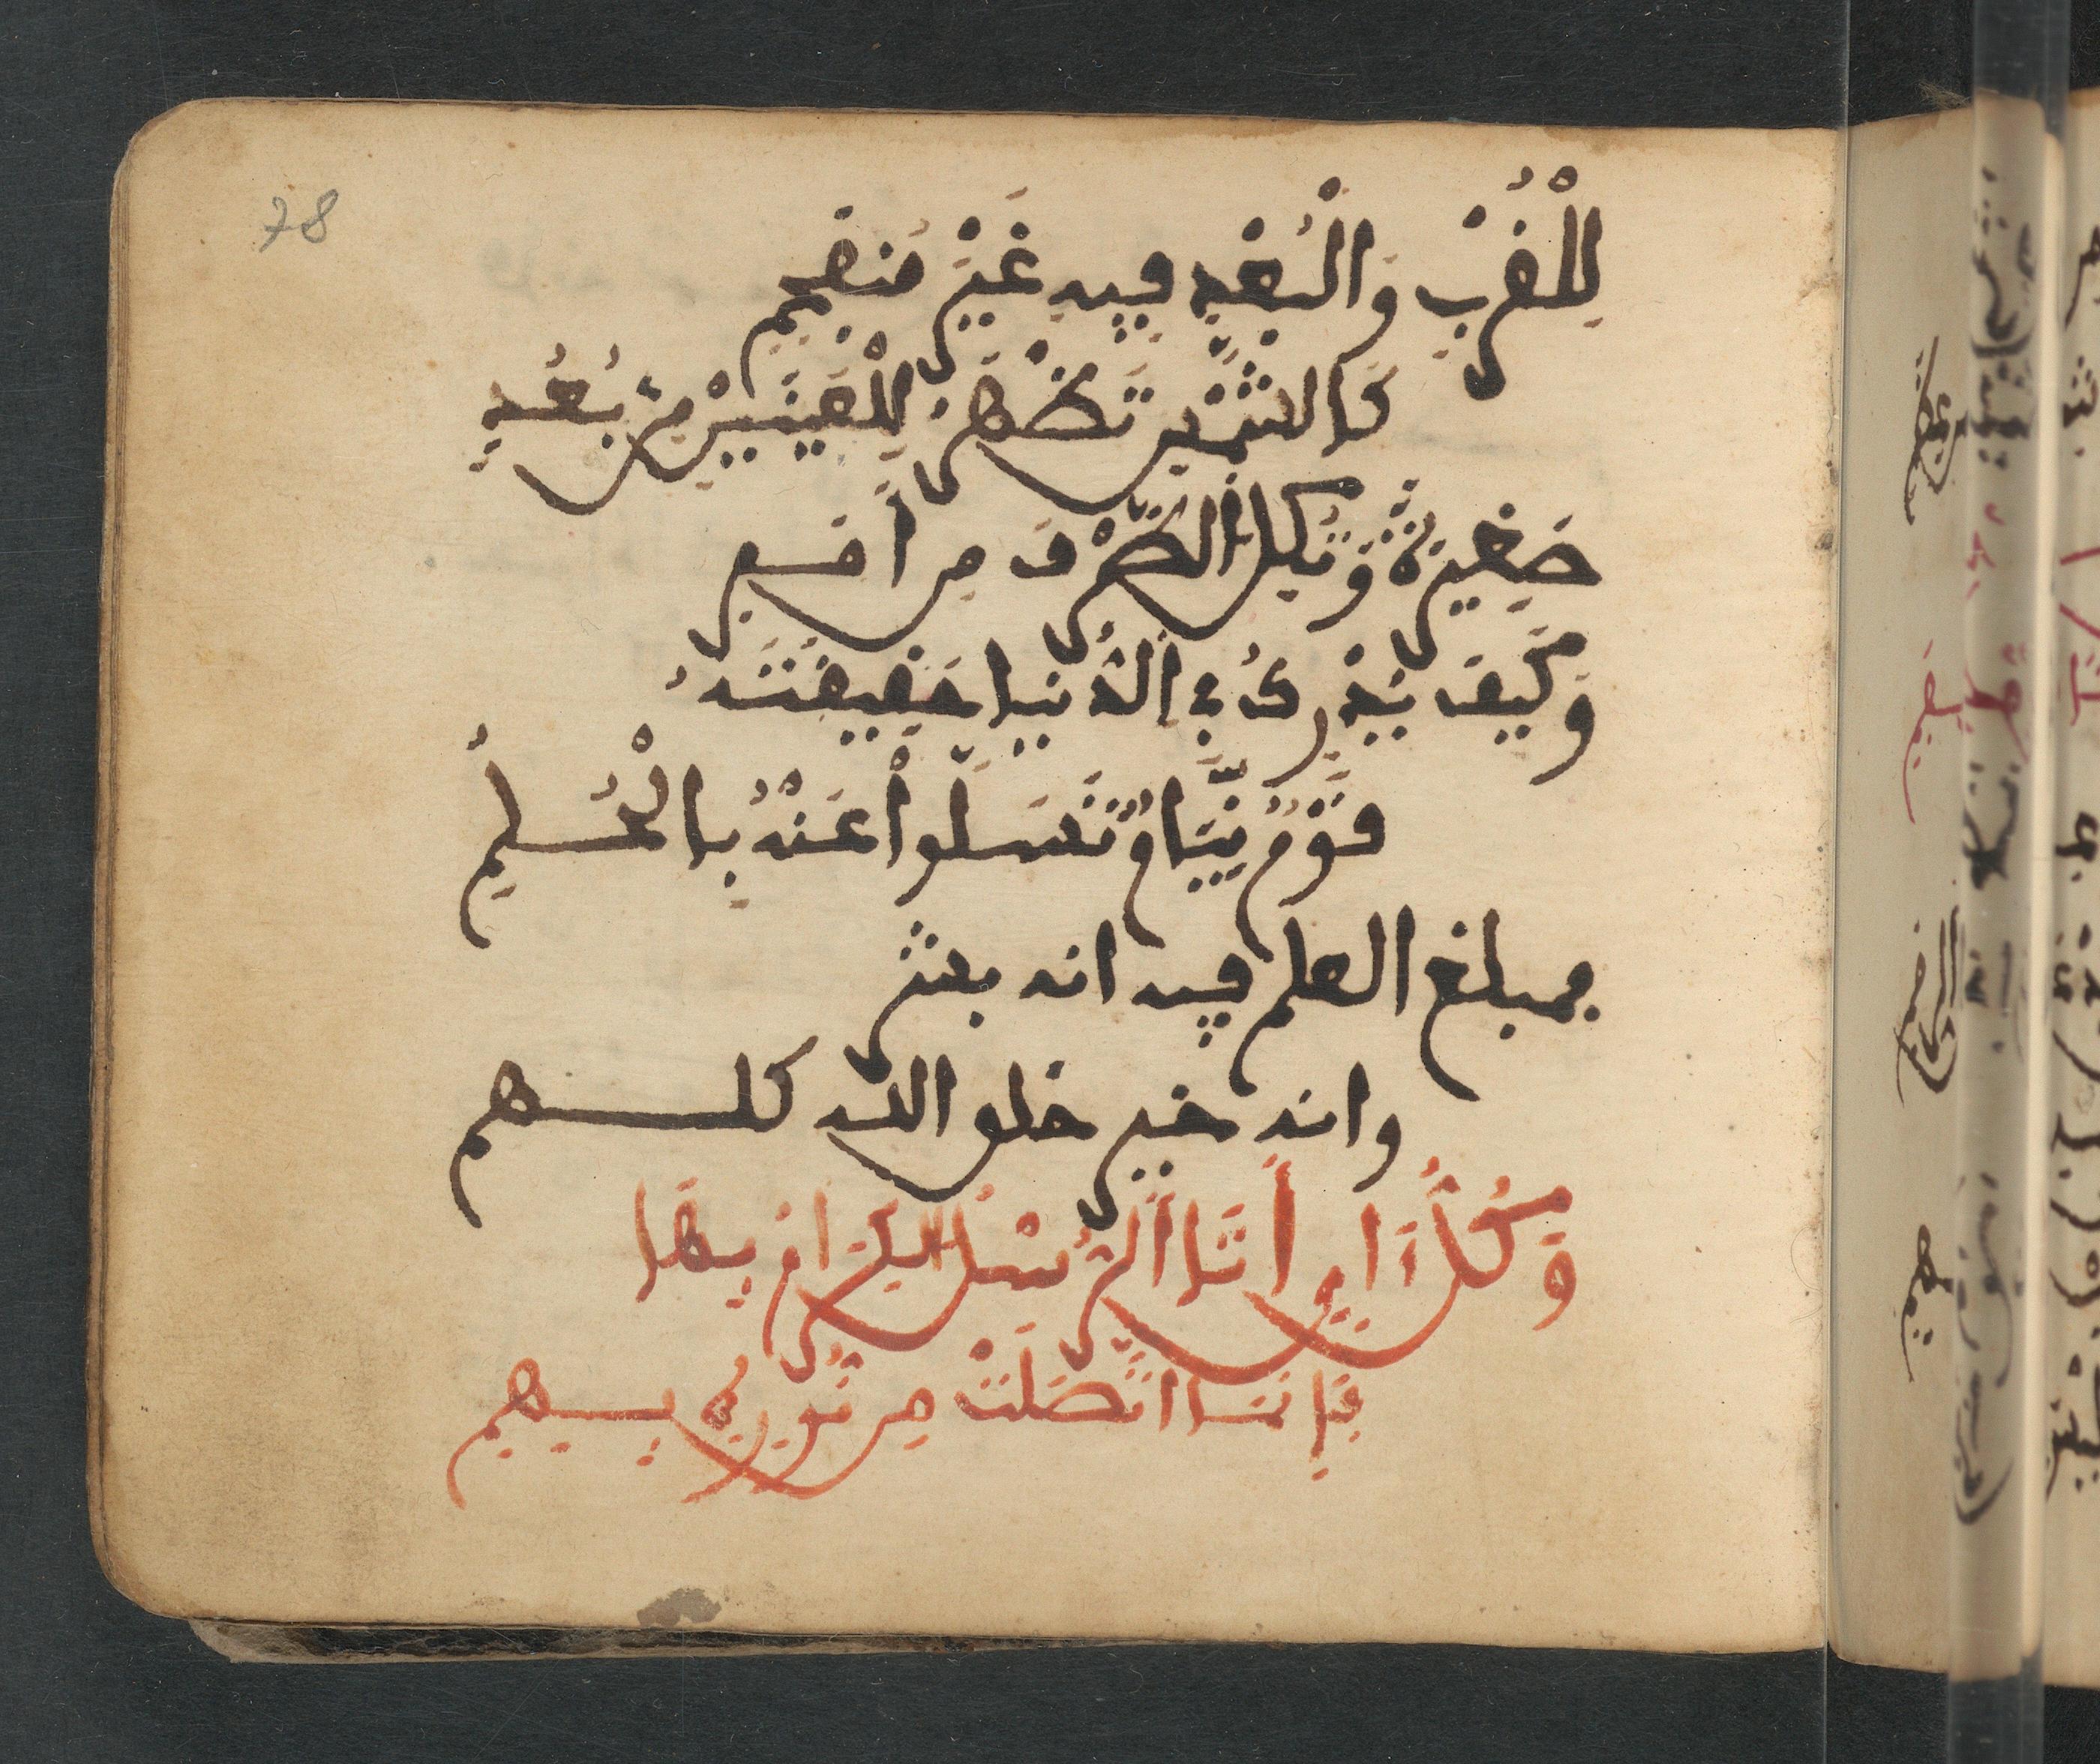 78
لِلْقُرْبِ وَالْبُعْدِ فِيهِ غَيْرُ مُنفَحِمِ
كَالشَّمْسِ تَظْهَرُ لِلْعَيْنَيْنِ مِنْ بُعُدٍ
صَغِيرَةً وَتُكِلُّ الطَّرْفَ مِن أَمَمِ
وَكَيْفَ يُدْرِكُ فِي الدُّنْيَا حَقِيقَتَهُ
قَوْمٌ نِيَّامٌ تَسَلَّوْا عَنْهُ بِالْحُلُمِ
فمبلغ العلم فيه انه بشر
وانه خير خلق الله كلهم
وَكُلُّ ءَايٍ أَتَى الرُّسْلُ الْكِرَامُ بِهَا
فَإِنَّمَا اتَّصَلَتْ مِن نُورِهِ بِهِمِ